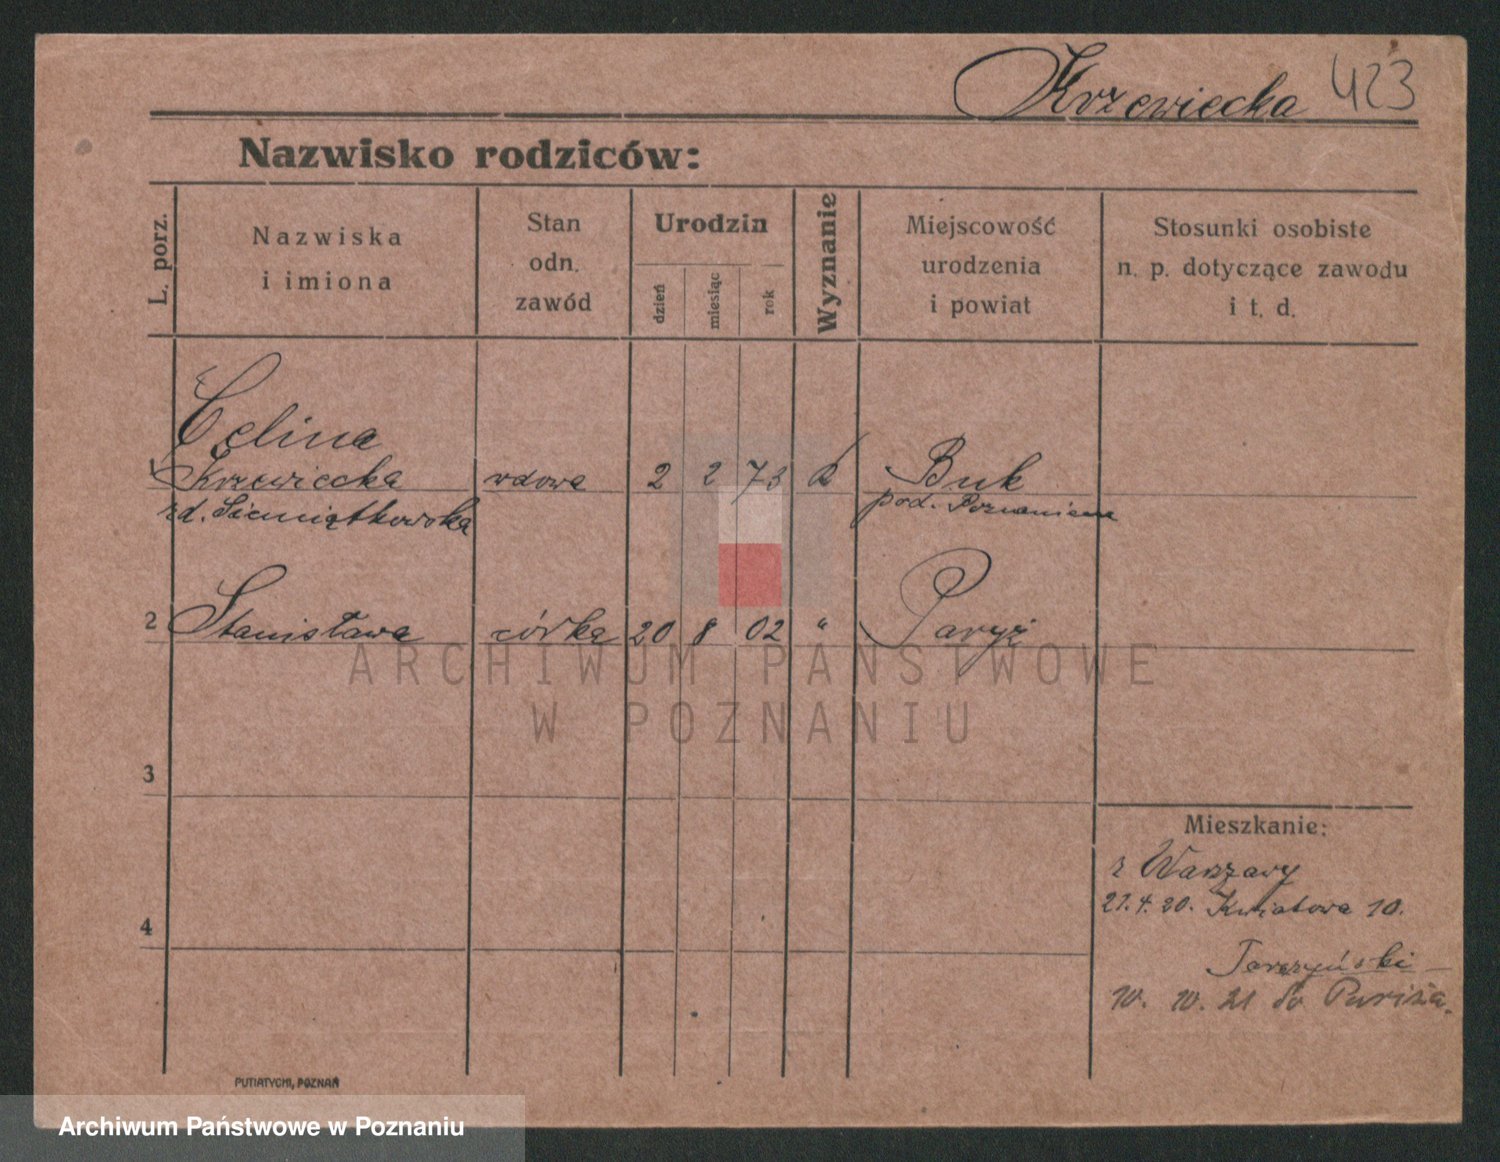 Krzewiecka 423
Nazwisko rodziców:
L. porz.
Nazwiska
i imiona
Stan
odn.
zawód
Urodzin
dzień
miesiąc
rok
Wyznanie
Miejscowość
urodzenia
i powiat
Stosunki osobiste
n. p. dotyczące zawodu
i t. d.
Celina
1 Krzewiecka wdowa 2 2 73 k Buk
zd. Siemiątkowska pod. Poznaniem
2 Stanisława córka 20 8 02 " Paryż
ARCHIWUM PAŃSTWOWE
W POZNANIU
3
Mieszkanie:
z Warszawy
21.4.20. Kwiatowa 10.
4
Tarczyński
10. 10. 21 do Paryża.
PUTIATYCKI, POZNAŃ
Archiwum Państwowe w Poznaniu